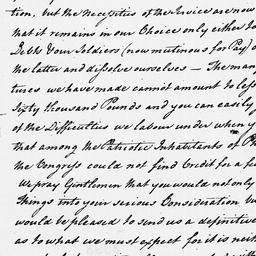 tion, but the Necessities of the Service are now
that it remains in our Choice only either to
Debts & our Soldiers (now mutinous for Pay) o
the latter and dissolve ourselves — The many
tures we have made cannot amount to less
Sixty thousand Pounds and you can easily
of the Difficulties we labour under when y
that among the Patriotic Inhabitants of Ph
the Congress could not find Credit for a fe
We pray Gentlemen that you would not only
Things into your serious Consideration bu
would be pleased to send us a definitive
as to what we must expect for it is nei